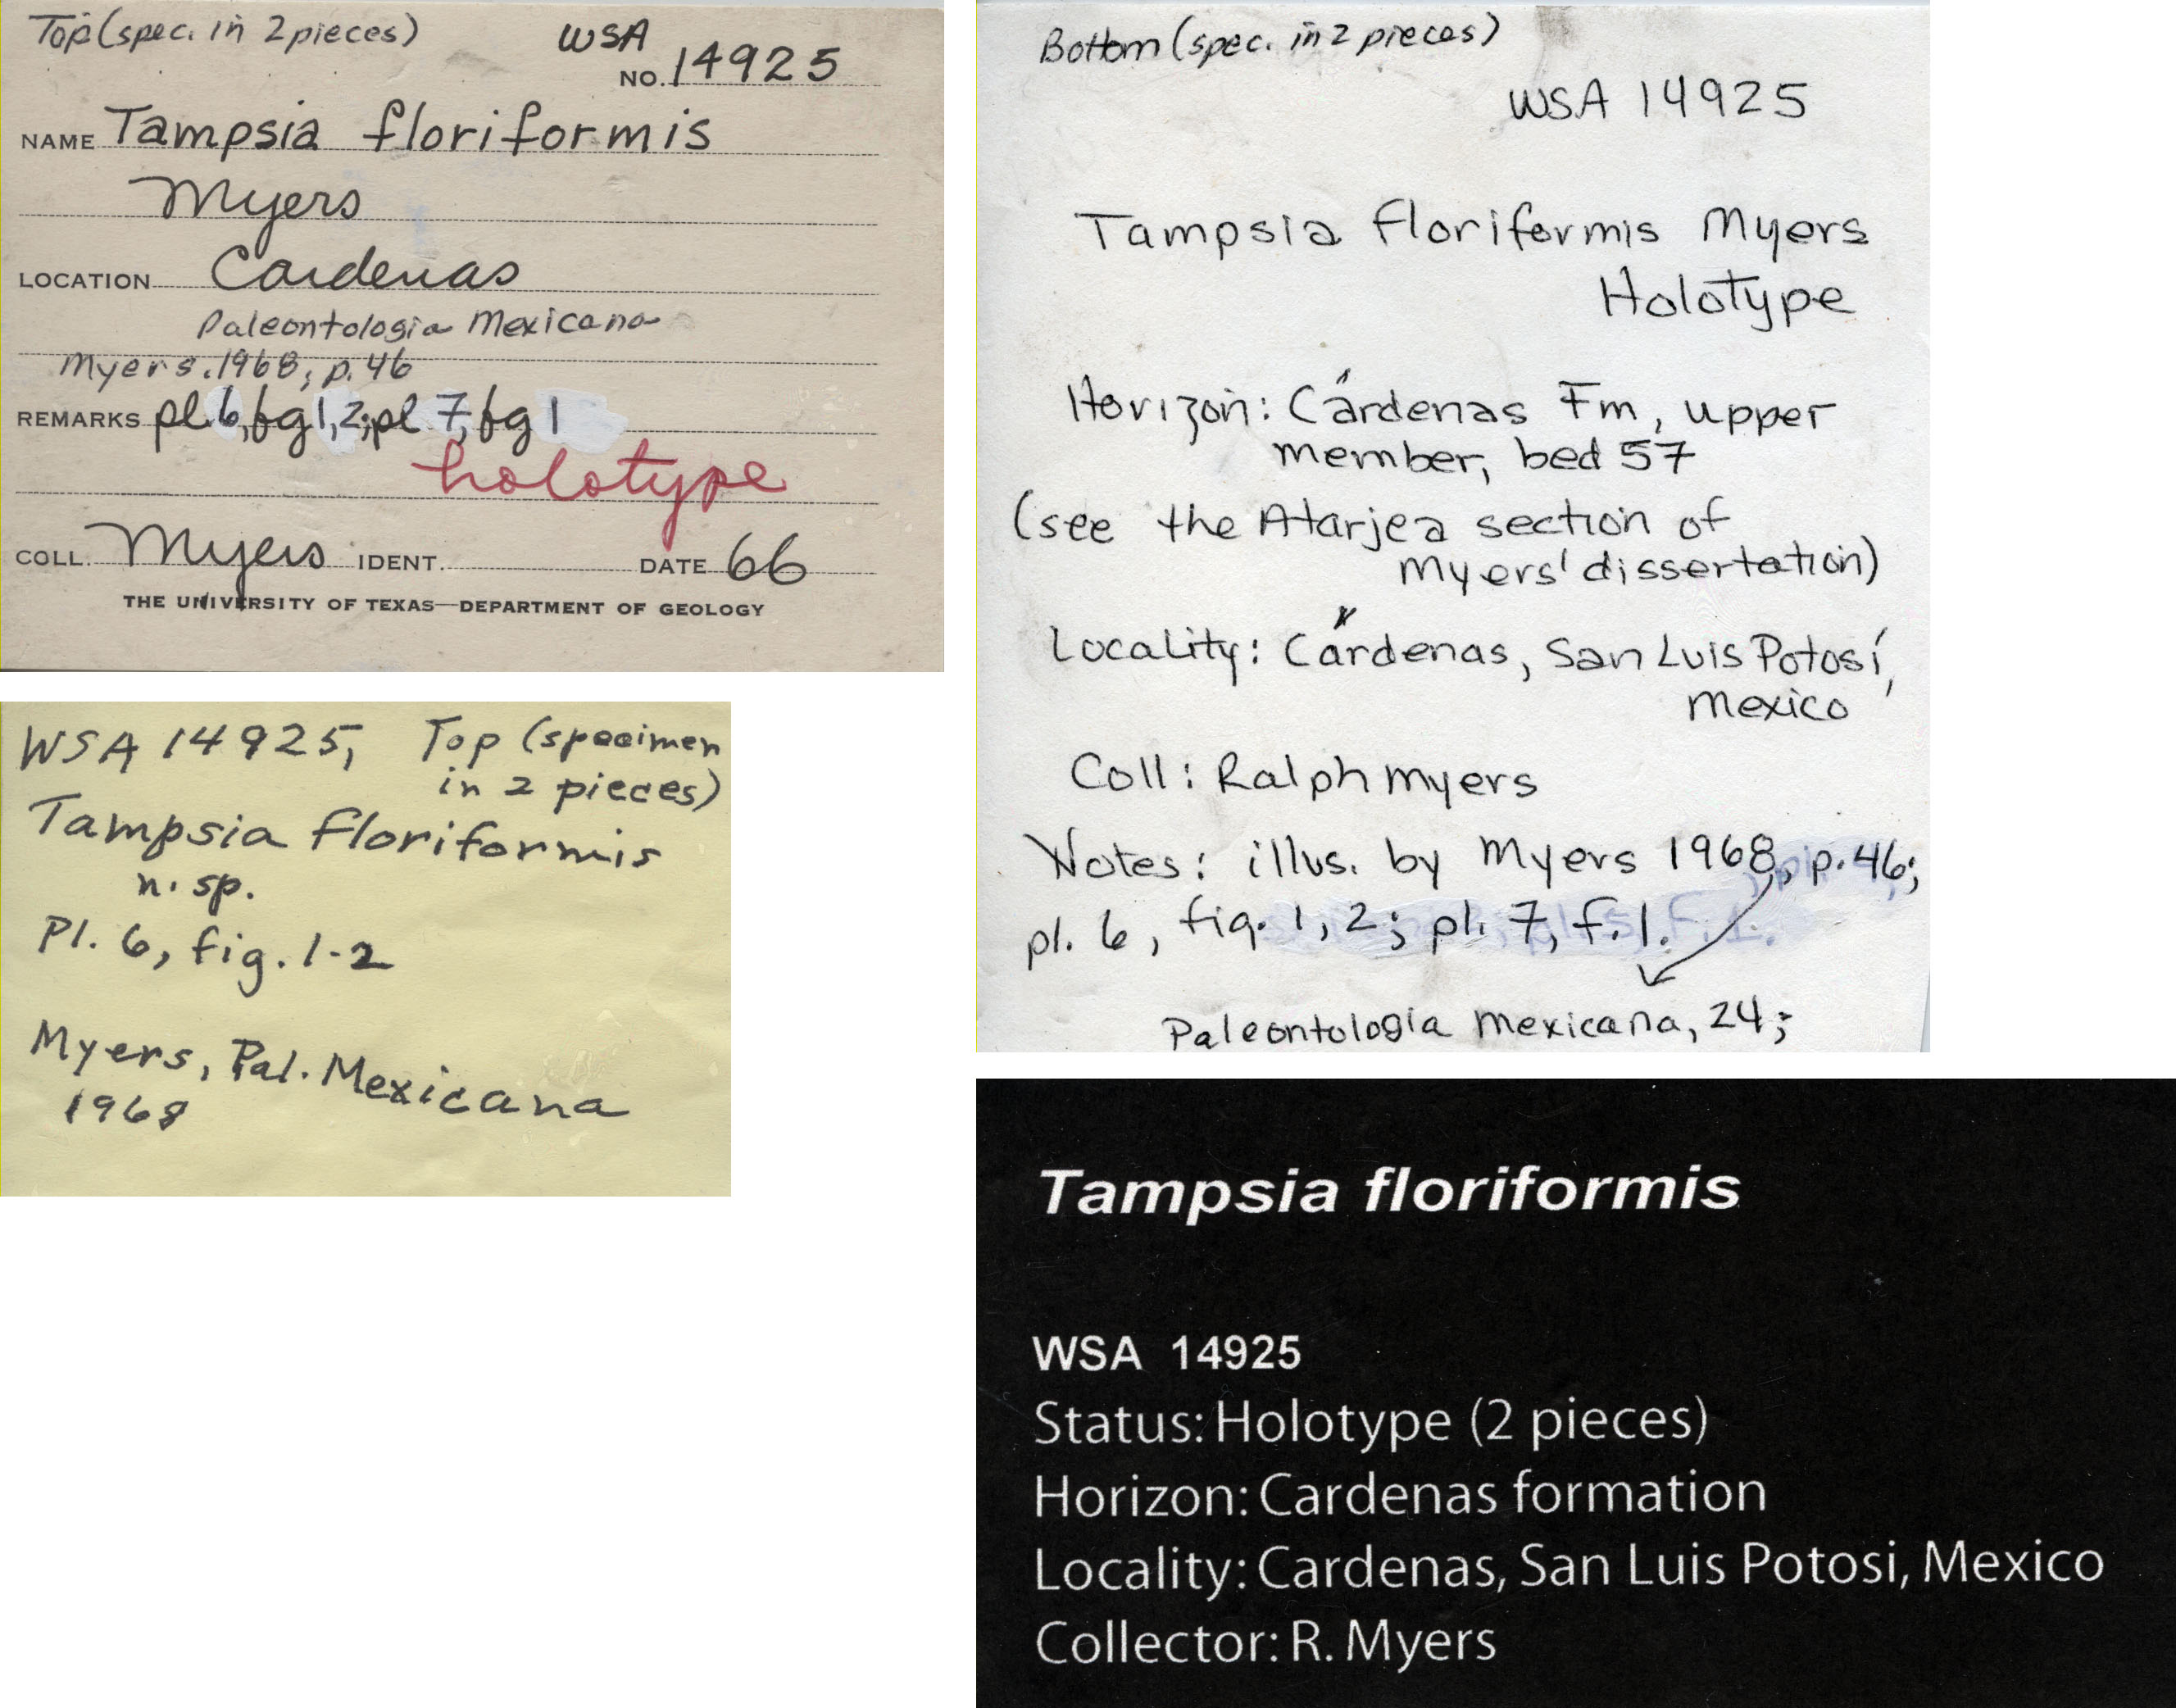 Top (spec. in 2 pieces)
WSA
NO. 14925
NAME Tampsia floriformis
Myers
LOCATION Cardenas
Paleontologia Mexicana
Myers. 1968; p. 46
REMARKS pl. 6, fg 1, 2; pl 7, fg 1
holotype
COLL. Myers IDENT. DATE 66
THE UNIVERSITY OF TEXAS—DEPARTMENT OF GEOLOGY
WSA 14925, Top (specimen
in 2 pieces)
Tampsia floriformis
n. sp.
Pl. 6, fig. 1-2
Myers, Pal. Mexicana
1968
Bottom (spec. in 2 pieces)
WSA 14925
Tampsia floriformis Myers
Holotype
Horizon: Cárdenas Fm, upper
member, bed 57
(see the Atarjea section of
Myers' dissertation)
Locality: Cárdenas, San Luis Potosí,
Mexico
Coll: Ralph Myers
Notes: illus. by Myers 1968, p. 46;
pl. 6, fig. 1, 2; pl. 7, f. 1.
Paleontologia Mexicana, 24;
Tampsia floriformis
WSA 14925
Status: Holotype (2 pieces)
Horizon: Cardenas formation
Locality: Cardenas, San Luis Potosi, Mexico
Collector: R. Myers